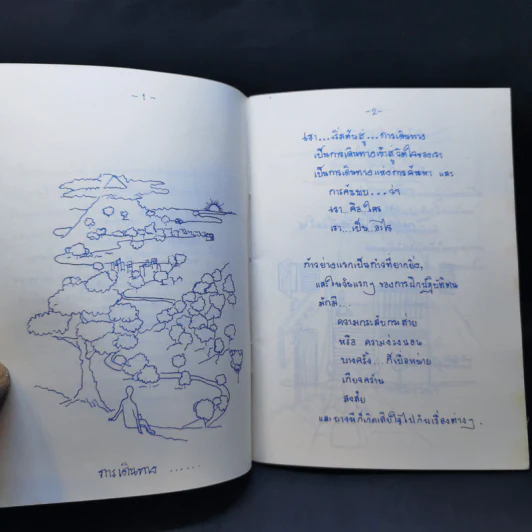 - 1 -
การเดินทาง ......
- 2 -
เรา...เริ่มต้นสู่...การเดินทาง
เป็นการเดินทางเข้าสู่จิตใจของเรา
เป็นการเดินทางแห่งการค้นหา และ
การค้นพบ...ว่า
เรา คือ ใคร
เรา...เป็น อะไร
ก้าวย่างแรกเป็นก้าวที่ยากยิ่ง,
และในวันแรกๆ ของการฝึกปฏิบัติตน
มักมี...
ความกระสับกระส่าย
หรือ ความง่วงนอน
บางครั้ง...ก็เบื่อหน่าย
เกียจคร้าน
สงสัย
และบางทีก็เกิดเสียใจไปกับเรื่องต่างๆ.